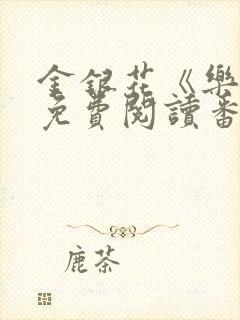 金銀花《樂
免費閱讀番
鹿茶